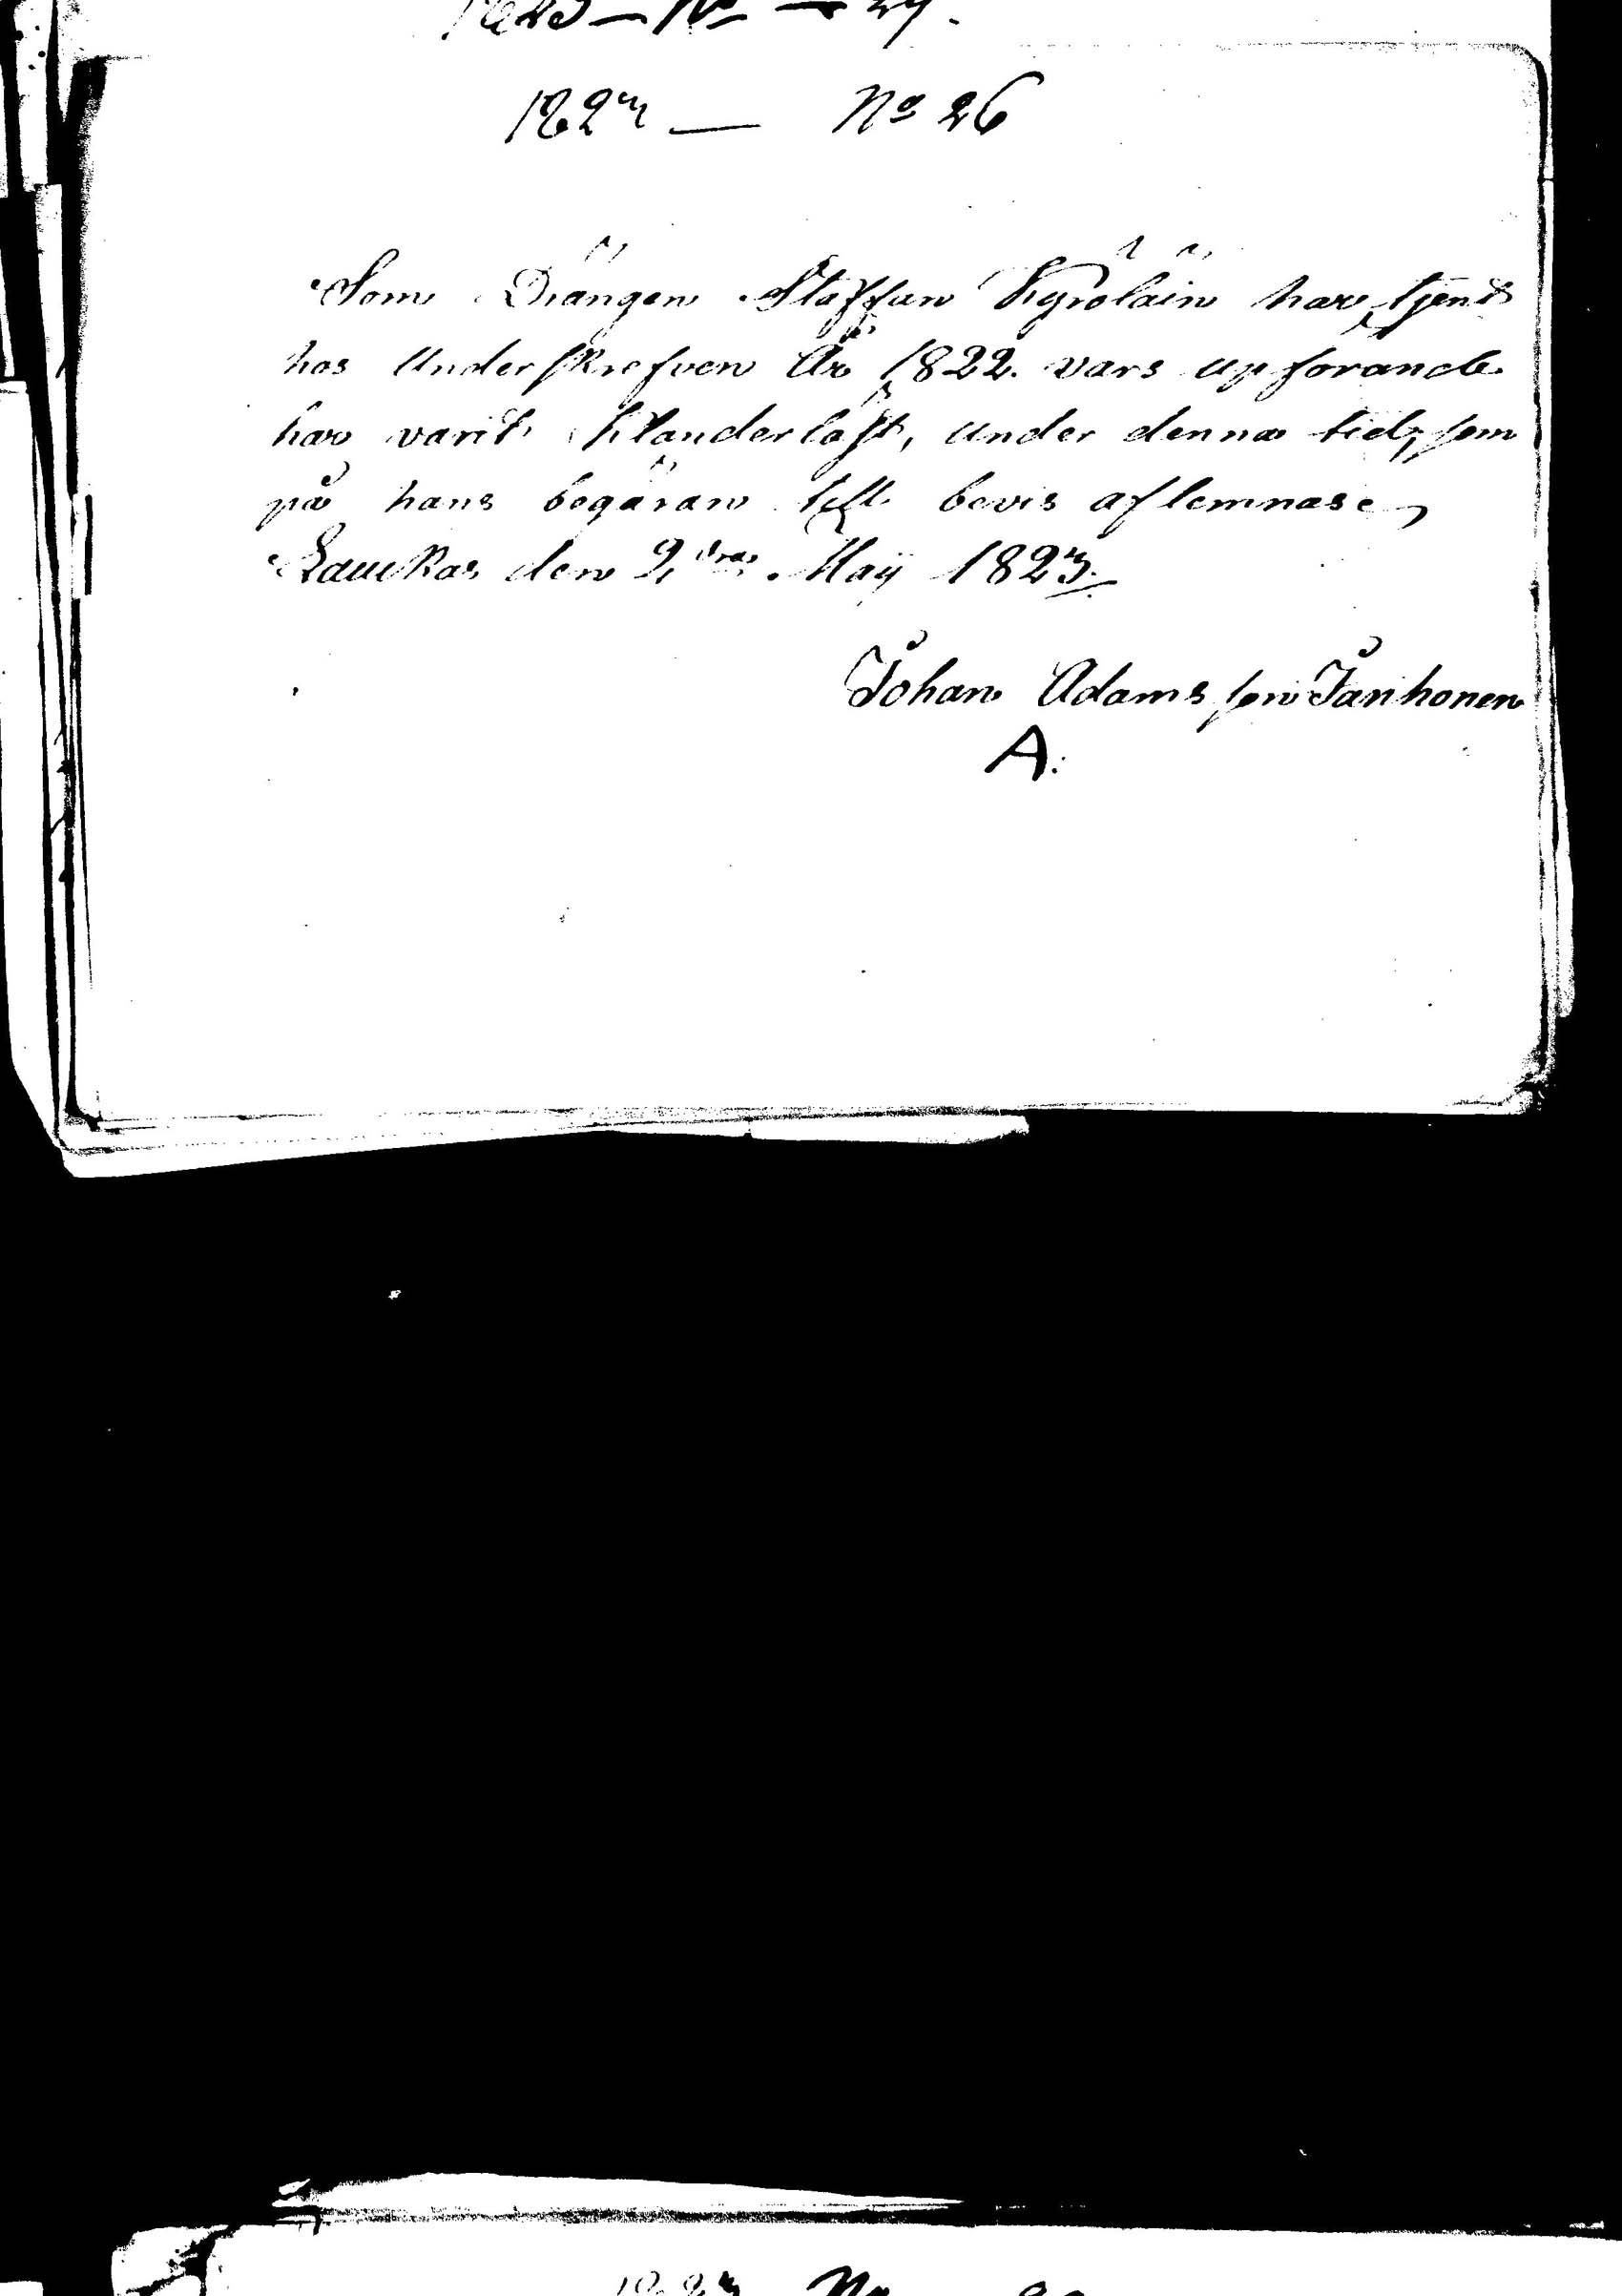 1823 — No — 24.
1823 — No 26
Som Drängen Staffan Kyröläin har tjent
hos Underskrefven År 1822. vars upförande
har varit klanderlöst, under denna tid, som
på hans begäran till bevis aflemnas.
Laukas den 2dra Maij 1823.
Johan Adamsson Janhonen
A:
1823 No